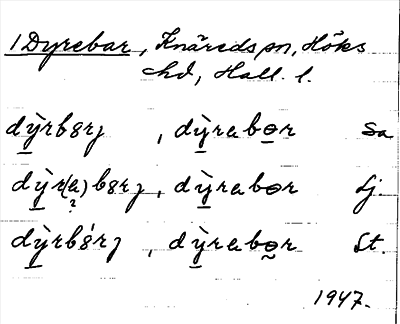 1 Dyrebar, Knäreds sn, Höks
hd, Hall. l.
dỳ̱rbɜrj , dỳ̱rabo̱r Sa
dỳ̱r(a)bɜrj, dỳ̱rabɵr Lj.
?
dỳ̱rbɜ́rj , dỳ̱rabo̰r St.
1947.